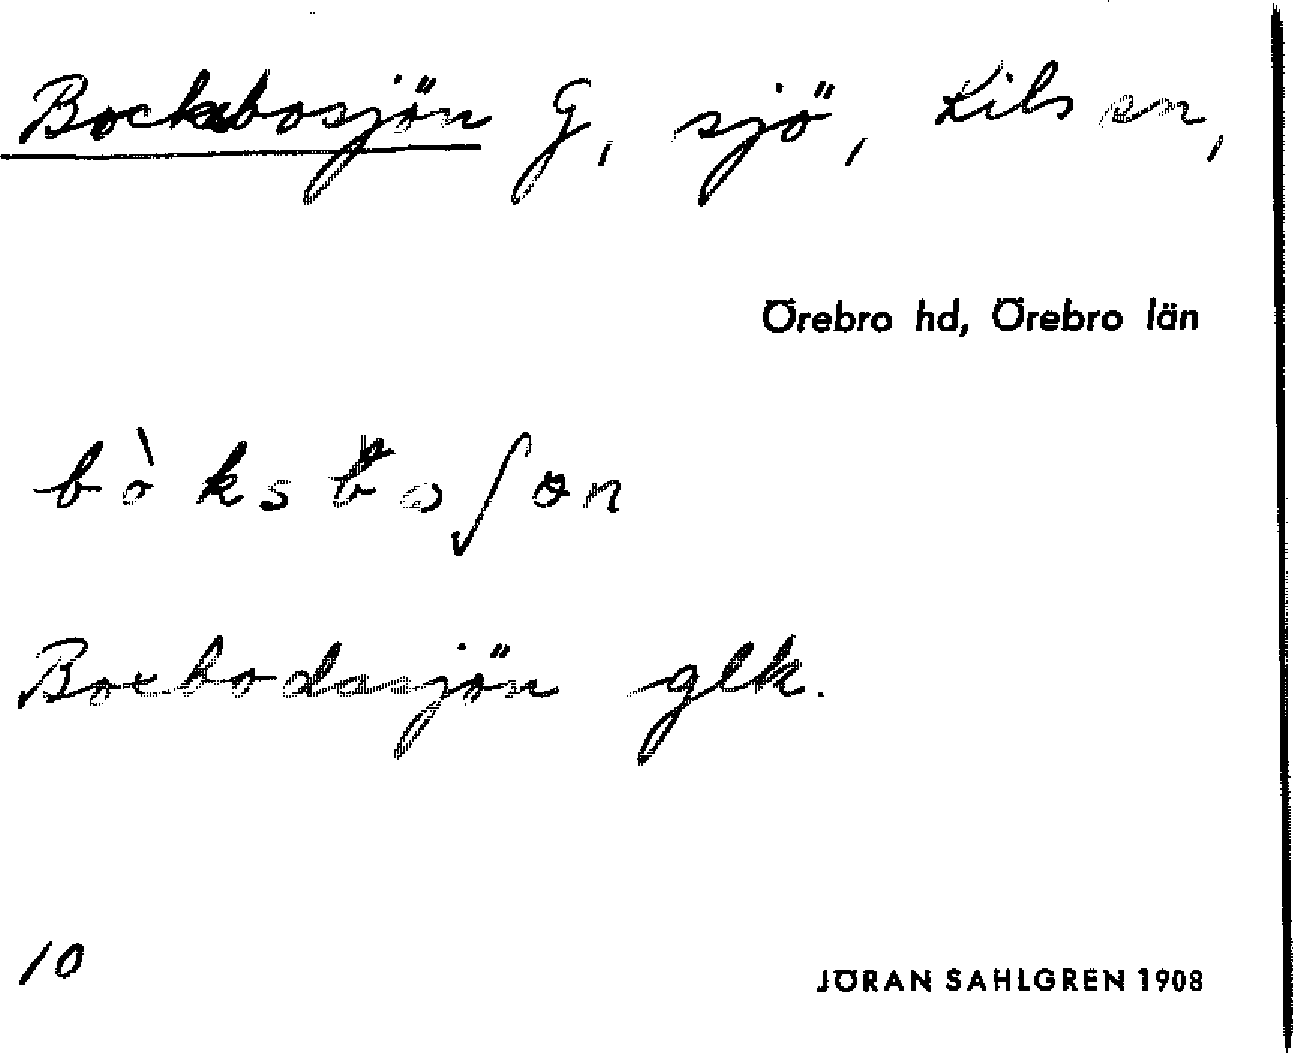 Bockbosjön G, sjö, Kils sn,
Örebro hd, Örebro län
Bocbodasjön glk.
10
JÖRAN SAHLGREN 1908